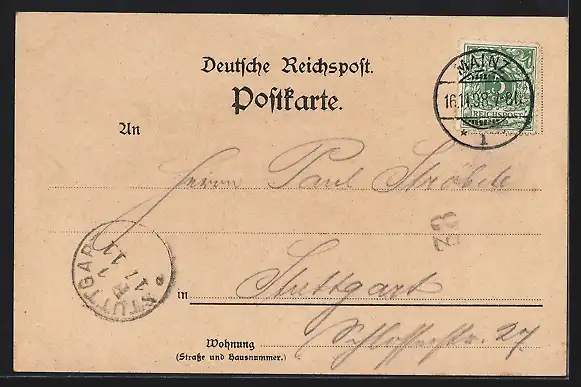 Deutsche Reichspost.
Postkarte.
MAINZ
16.11.98.7-8N.
* 1
5
REICHSPOST
An
Herrn Paul Ströbele
82
STUTTGART
17 11
in Stuttgart
Wohnung Schlosserstr. 27
(Straße und Hausnummer.)